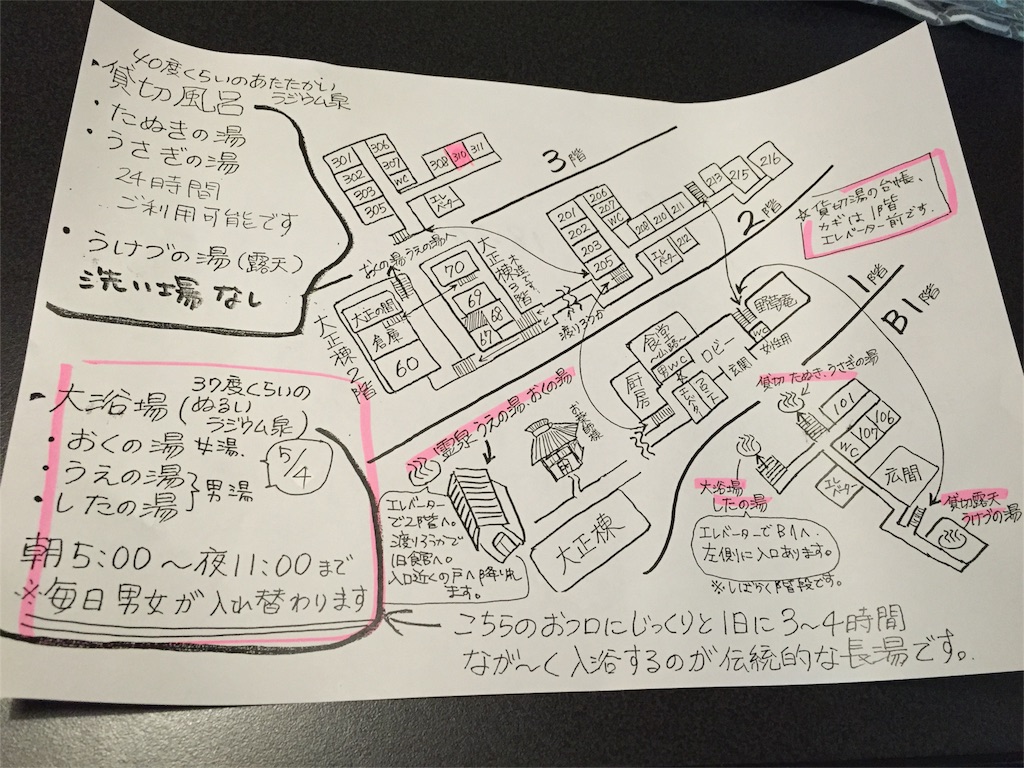 40度くらいのあたたかい
ラジウム泉
・貸切風呂
・たぬきの湯
・うさぎの湯
24時間
ご利用可能です
・うけづの湯(露天)
洗い場なし
37度くらいの
(ぬるい
ラジウム泉)
・大浴場
・おくの湯 女湯.
・うえの湯
・したの湯
男湯
5/4
朝5:00～夜11:00まで
※毎日男女が入れ替わります
3階
301
302
303
305
306
307
WC
308
310
311
エレベーター
2階
201
202
203
205
206
207
WC
208
210
211
212
213
215
216
エレベーター
☆貸切湯の台帳、
カギは1階
エレベーター前です.
おくの湯うえの湯へ
大正棟2階
大正の間
倉庫
60
大正棟3階
70
69
68
67
渡りろうか
1階
食堂
～山路～
男WC
厨房
エレベーター
ロビー
玄関
野草庵
WC
女性用
霊泉・うえの湯・おくの湯
エレベーター
で2階へ。
渡りろうかで
旧館へ
入口近くの戸へ降りれ
ます。
大正棟
B1階
貸切 たぬき、うさぎの湯
101
106
107
WC
エレベーター
玄関
大浴場
したの湯
エレベーターでB1へ.
左側に入口あります。
※しばらく階段です。
貸切露天
うけづの湯
こちらのおフロにじっくりと1日に3～4時間
なが～く入浴するのが伝統的な長湯です。